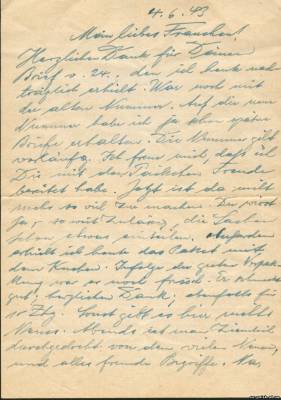 4.6.43
Mein liebes Frauchen!
Herzlichen Dank für Deinen
Brief v. 24., den ich heute nach-
träglich erhielt. War noch mit
der alten Nummer. Auf die neue
Nummer habe ich ja schon später
Briefe erhalten. Die Nummer gilt
vorläufig. Ich freue mich, daß ich
Dir mit den Päckchen Freude
bereitet habe. Jetzt ist da nicht
mehr so viel zu machen. Du
ja, so mit die Sachen
schon etwas einteilen. Außerdem
erhielt ich heute das Paket mit
dem Kuchen. Infolge der guten Verpak-
kung war es noch frisch. Er schmeckt
gut, herzlichen Dank, ebenfalls für
10 Ztg. Sonst gibt es hier nichts
Neues. Abends ist man ziemlich
durchgedreht von den vielen Neuen,
und alles fremde Begriffe. Na,